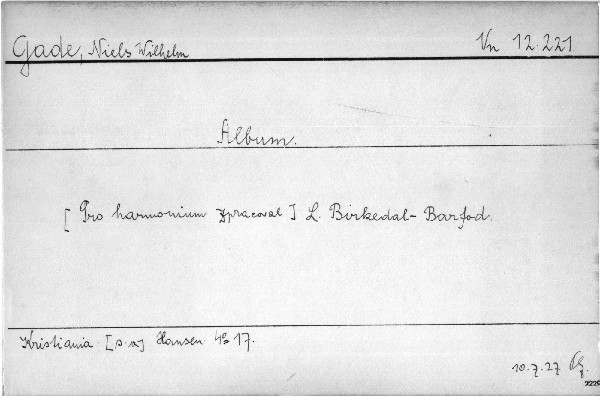 Gade, Niels Wilhelm Vn 12.221
Album.
[Pro harmonium zpracoval] L. Birkedal-Barfod.
Kristiania [s.a.] Hansen 4° 17.
10.7.27
2229